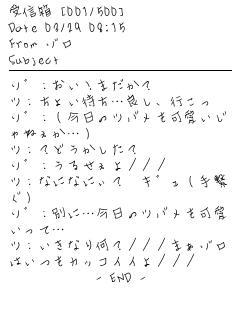 受信箱 [001/500]
Date 08/29 08:15
From ゾロ
Subject
ゾ:おい!まだか?
ツ:ちょい待ち…良し、行こっ
ゾ:(今日のツバメも可愛いじ
ゃねぇか…)
ツ:?どうかした?
ゾ:うるせぇよ///
ツ:なになにぃ? ギュ(手繋
ぐ)
ゾ:別に…今日のツバメも可愛
いって…
ツ:いきなり何て///まぁゾロ
はいつもカッコイイよ///
-END-